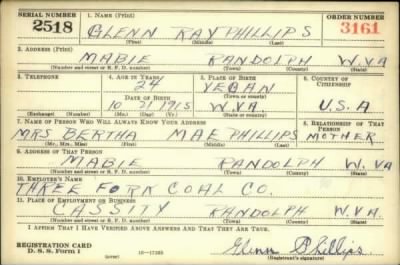 SERIAL NUMBER 1. NAME (Print) ORDER NUMBER
2518 GLENN RAY PHILLIPS 3161
(First) (Middle) (Last)
2. ADDRESS (Print)
MABIE RANDOLPH W.VA
(Number and street or R. F. D. number) (Town) (County) (State)
3. TELEPHONE 4. AGE IN YEARS 5. PLACE OF BIRTH 6. COUNTRY OF CITIZENSHIP
24 YEGAN
DATE OF BIRTH (Town or county)
10 21 1915 W.VA. U.S.A
(Exchange) (Number) (Mo.) (Day) (Yr.) (State or country)
7. NAME OF PERSON WHO WILL ALWAYS KNOW YOUR ADDRESS 8. RELATIONSHIP OF THAT PERSON
MRS BERTHA MAE PHILLIPS MOTHER
(Mr., Mrs., Miss) (First) (Middle) (Last)
9. ADDRESS OF THAT PERSON
MABIE RANDOLPH W. VA
(Number and street or R. F. D. number) (Town) (County) (State)
10. EMPLOYER'S NAME
THREE FORK COAL CO.
11. PLACE OF EMPLOYMENT OR BUSINESS
CASSITY RANDOLPH W.VA.
(Number and street or R. F. D. number) (Town) (County) (State)
I AFFIRM THAT I HAVE VERIFIED ABOVE ANSWERS AND THAT THEY ARE TRUE.
REGISTRATION CARD
D. S. S. Form 1 (over) 16—17105 Glenn Phillips
(Registrant's signature)